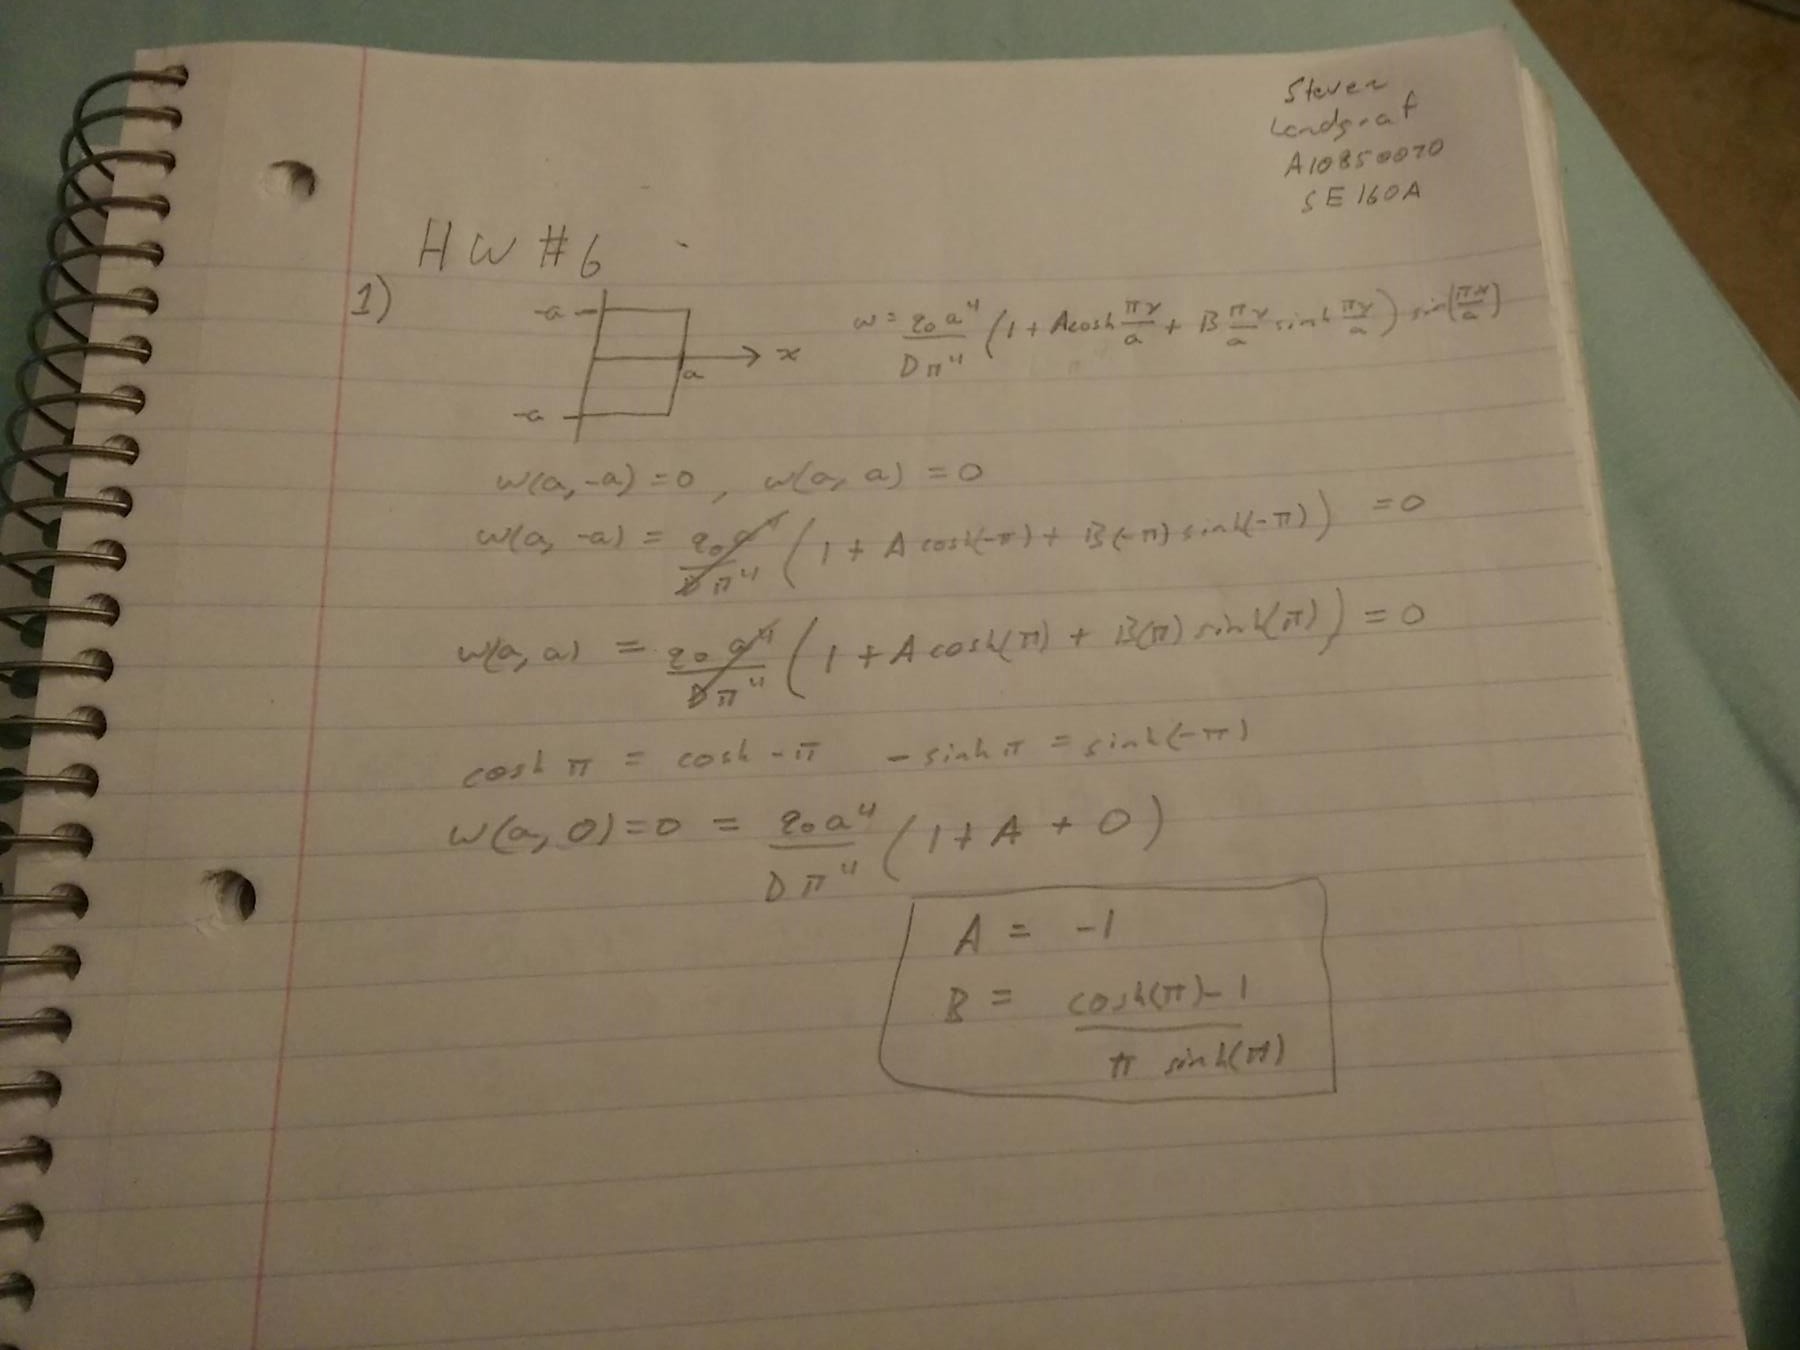 Steven
Landgraf
A10850070
SE 160A
HW #6
1)
-a
x
a
-a
w = q₀a⁴/Dπ⁴ (1 + A cosh πy/a + B πy/a sinh πy/a) sin(πx/a)
w(a, -a) = 0 , w(a, a) = 0
w(a, -a) = q₀a⁴/Dπ⁴ (1 + A cosh(-π) + B(-π) sinh(-π)) = 0
w(a, a) = q₀a⁴/Dπ⁴ (1 + A cosh(π) + B(π) sinh(π)) = 0
cosh π = cosh -π -sinh π = sinh(-π)
w(a, 0) = 0 = q₀a⁴/Dπ⁴ (1 + A + 0)
A = -1
B = cosh(π) - 1 / π sinh(π)